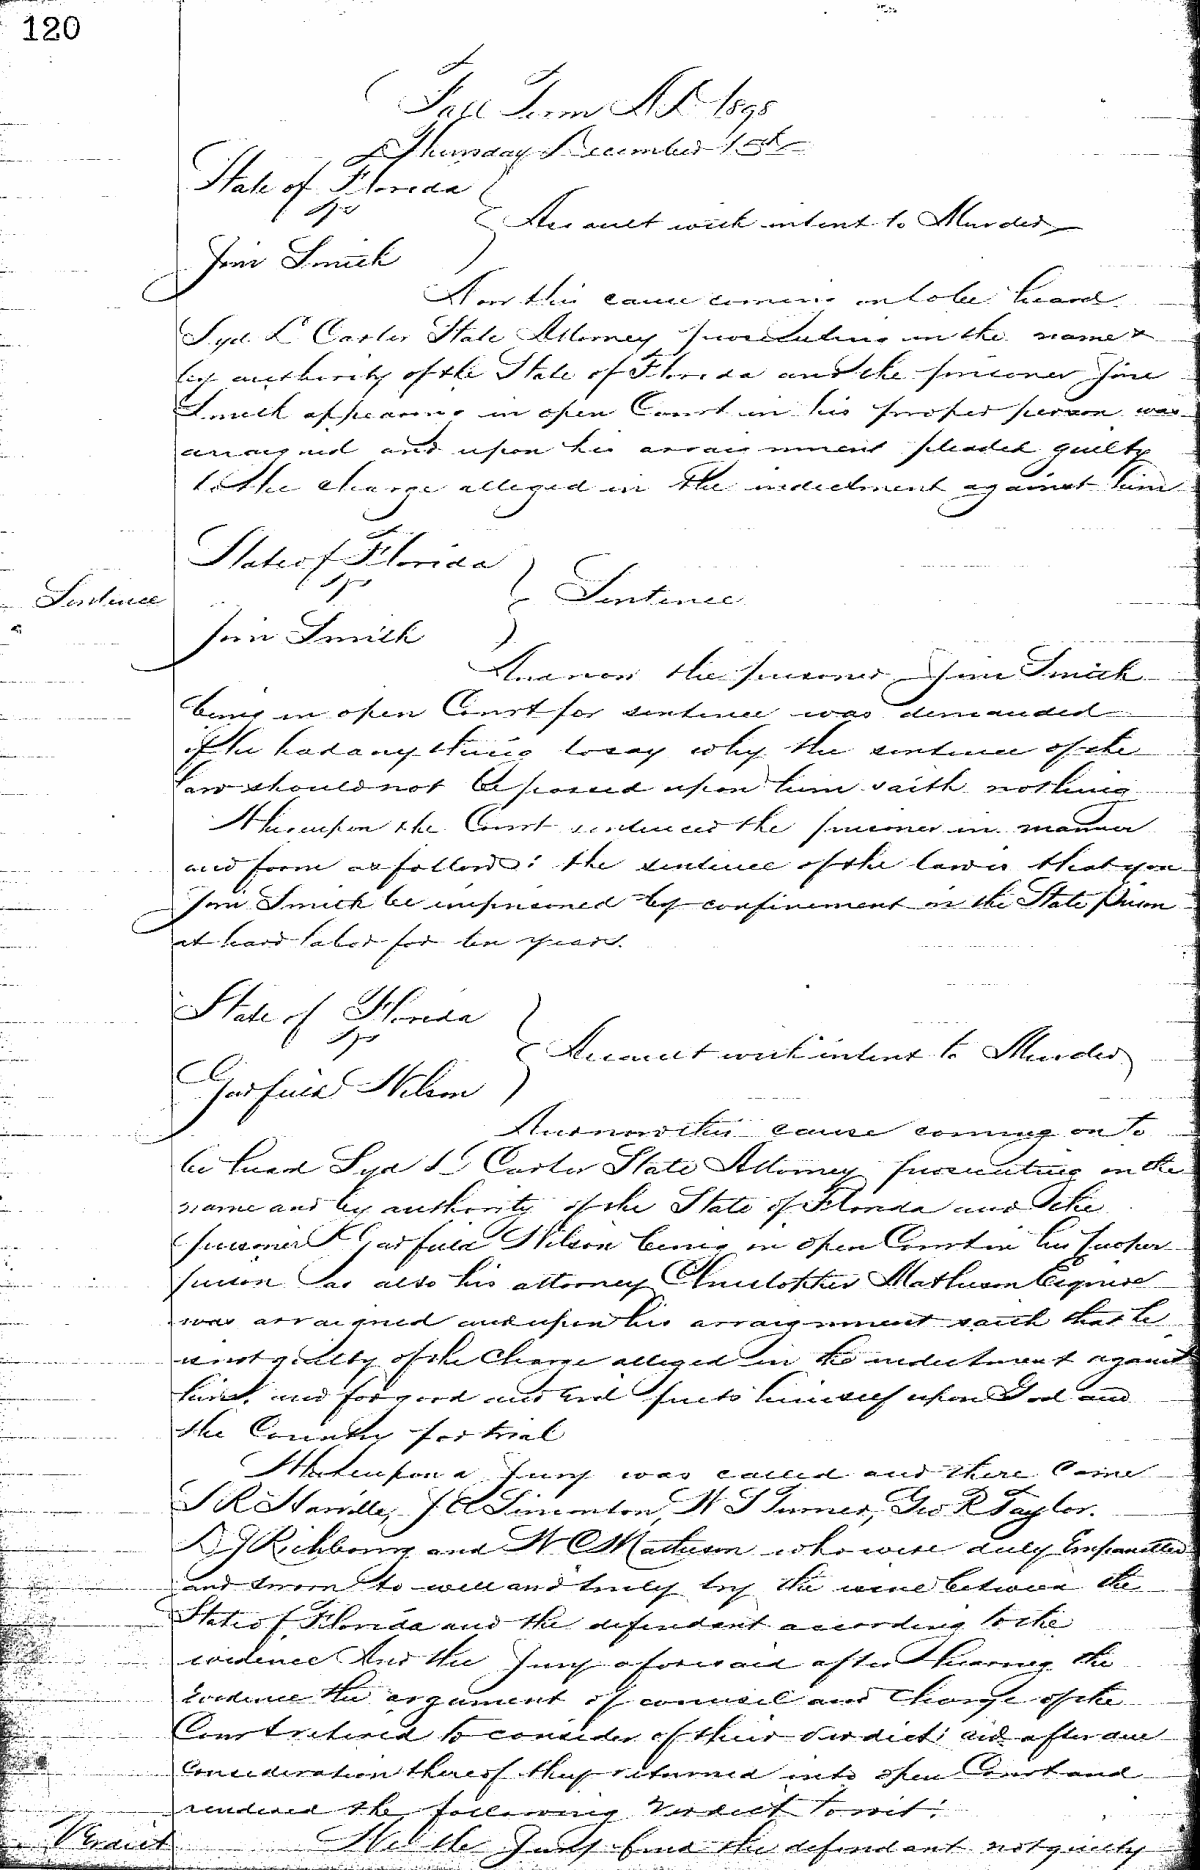 120
Fall Term A.D. 1898
Thursday December 15th
State of Florida
vs
Assault with intent to Murder
Jim Smith
Now this cause coming on to be heard
Syd L Carter State Attorney prosecuting in the name &
by authority of the State of Florida and the prisoner Jim
Smith appearing in open Court in his proper person was
arraigned and upon his arraignment pleaded guilty
to the charge alleged in the indictment against him
State of Florida
vs
Sentence
Sentence
Jim Smith
And now the prisoner Jim Smith
being in open Court for sentence was demanded
if he had any thing to say why the sentence of the
law should not be passed upon him saith nothing
Thereupon the Court sentenced the prisoner in manner
and form as follows: the sentence of the law is that you
Jim Smith be imprisoned by confinement in the State prison
at hard labor for ten years.
State of Florida
vs
Assault with intent to Murder
Garfield Wilson
And now this cause coming on to
be heard Syd L Carter State Attorney prosecuting in the
name and by authority of the State of Florida and the
prisoner Garfield Wilson being in open Court in his proper
person as also his attorney Christopher Matheson Esquire
was arraigned and upon his arraignment saith that he
is not guilty of the Charge alleged in the indictment against
him, and for good and evil puts himself upon God and
the Country for trial
Whereupon a Jury was called and there Came
S R Harville, J A Simonton, W S Turner, Geo R Taylor.
D J Richbourg and W C Matheson who were duly Empanelled
and sworn to well and truly try the issue between the
State of Florida and the defendant according to the
evidence And the Jury aforesaid after hearing the
evidence the argument of counsel and Charge of the
Court retired to consider of their verdict; and after due
Consideration thereof they returned into open Court and
rendered the following Verdict to wit:
Verdict
We the Jury find the defendant not guilty